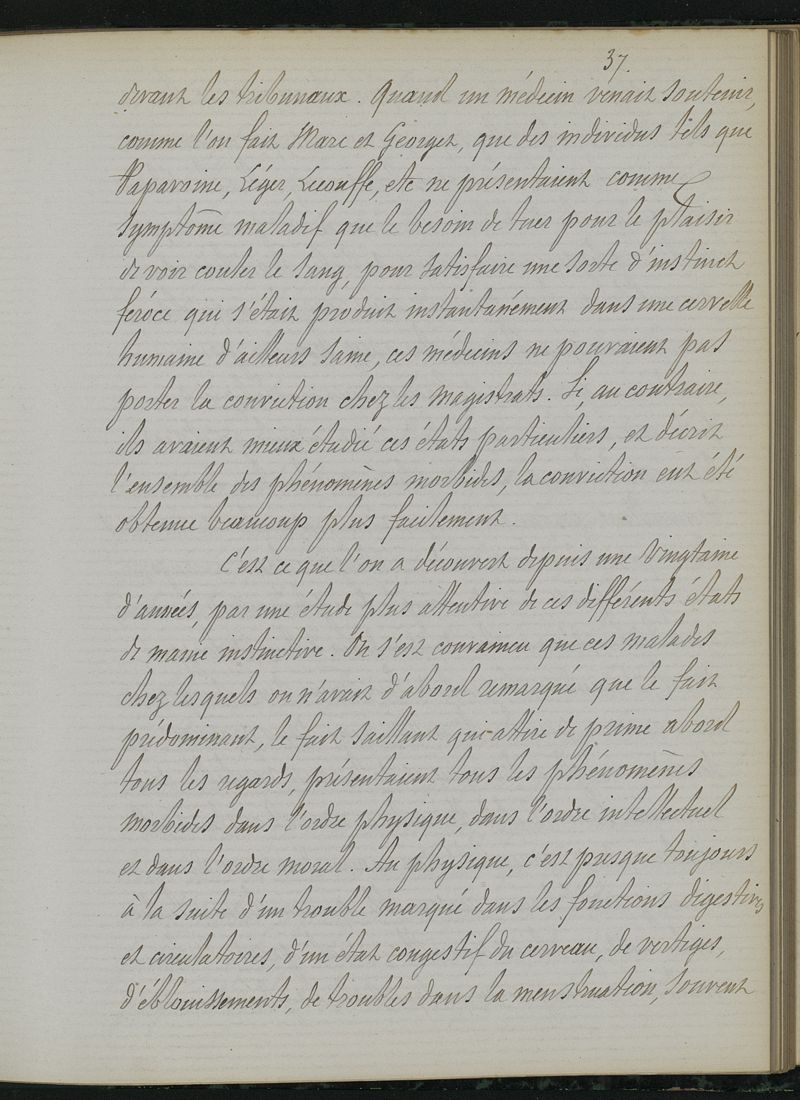 37
devant les tribunaux. Quand un médecin venait soutenir,
comme l'on fait Marc et Georget, que des individus tels que
Papavoine, Léger, Lecouffe, etc ne présentaient comme
symptôme maladif que le besoin de tuer pour le plaisir
de voir couler le sang, pour satisfaire une sorte d'instinct
féroce qui s'était produit instantanément dans une cervelle
humaine d'ailleurs saine, ces médecins ne pouvaient pas
porter la conviction chez les magistrats. Si, au contraire,
ils avaient mieux étudié ces états particuliers, et décrit
l'ensemble des phénomènes morbides, la conviction eut été
obtenue beaucoup plus facilement.
C'est ce que l'on a découvert depuis une vingtaine
d'années, par une étude plus attentive de ces différents états
de manie instinctive. On s'est convaincu que ces malades
chez lesquels on n'avait d'abord remarqué que le fait
prédominant, le fait saillant qui attire de prime abord
tous les regards, présentaient tous les phénomènes
morbides dans l'ordre physique, dans l'ordre intellectuel
et dans l'ordre moral. Au physique, c'est presque toujours
à la suite d'un trouble marqué dans les fonctions digestives
et circulatoires, d'un état congestif du cerveau, de vertiges,
d'éblouissements, de troubles dans la menstruation, souvent